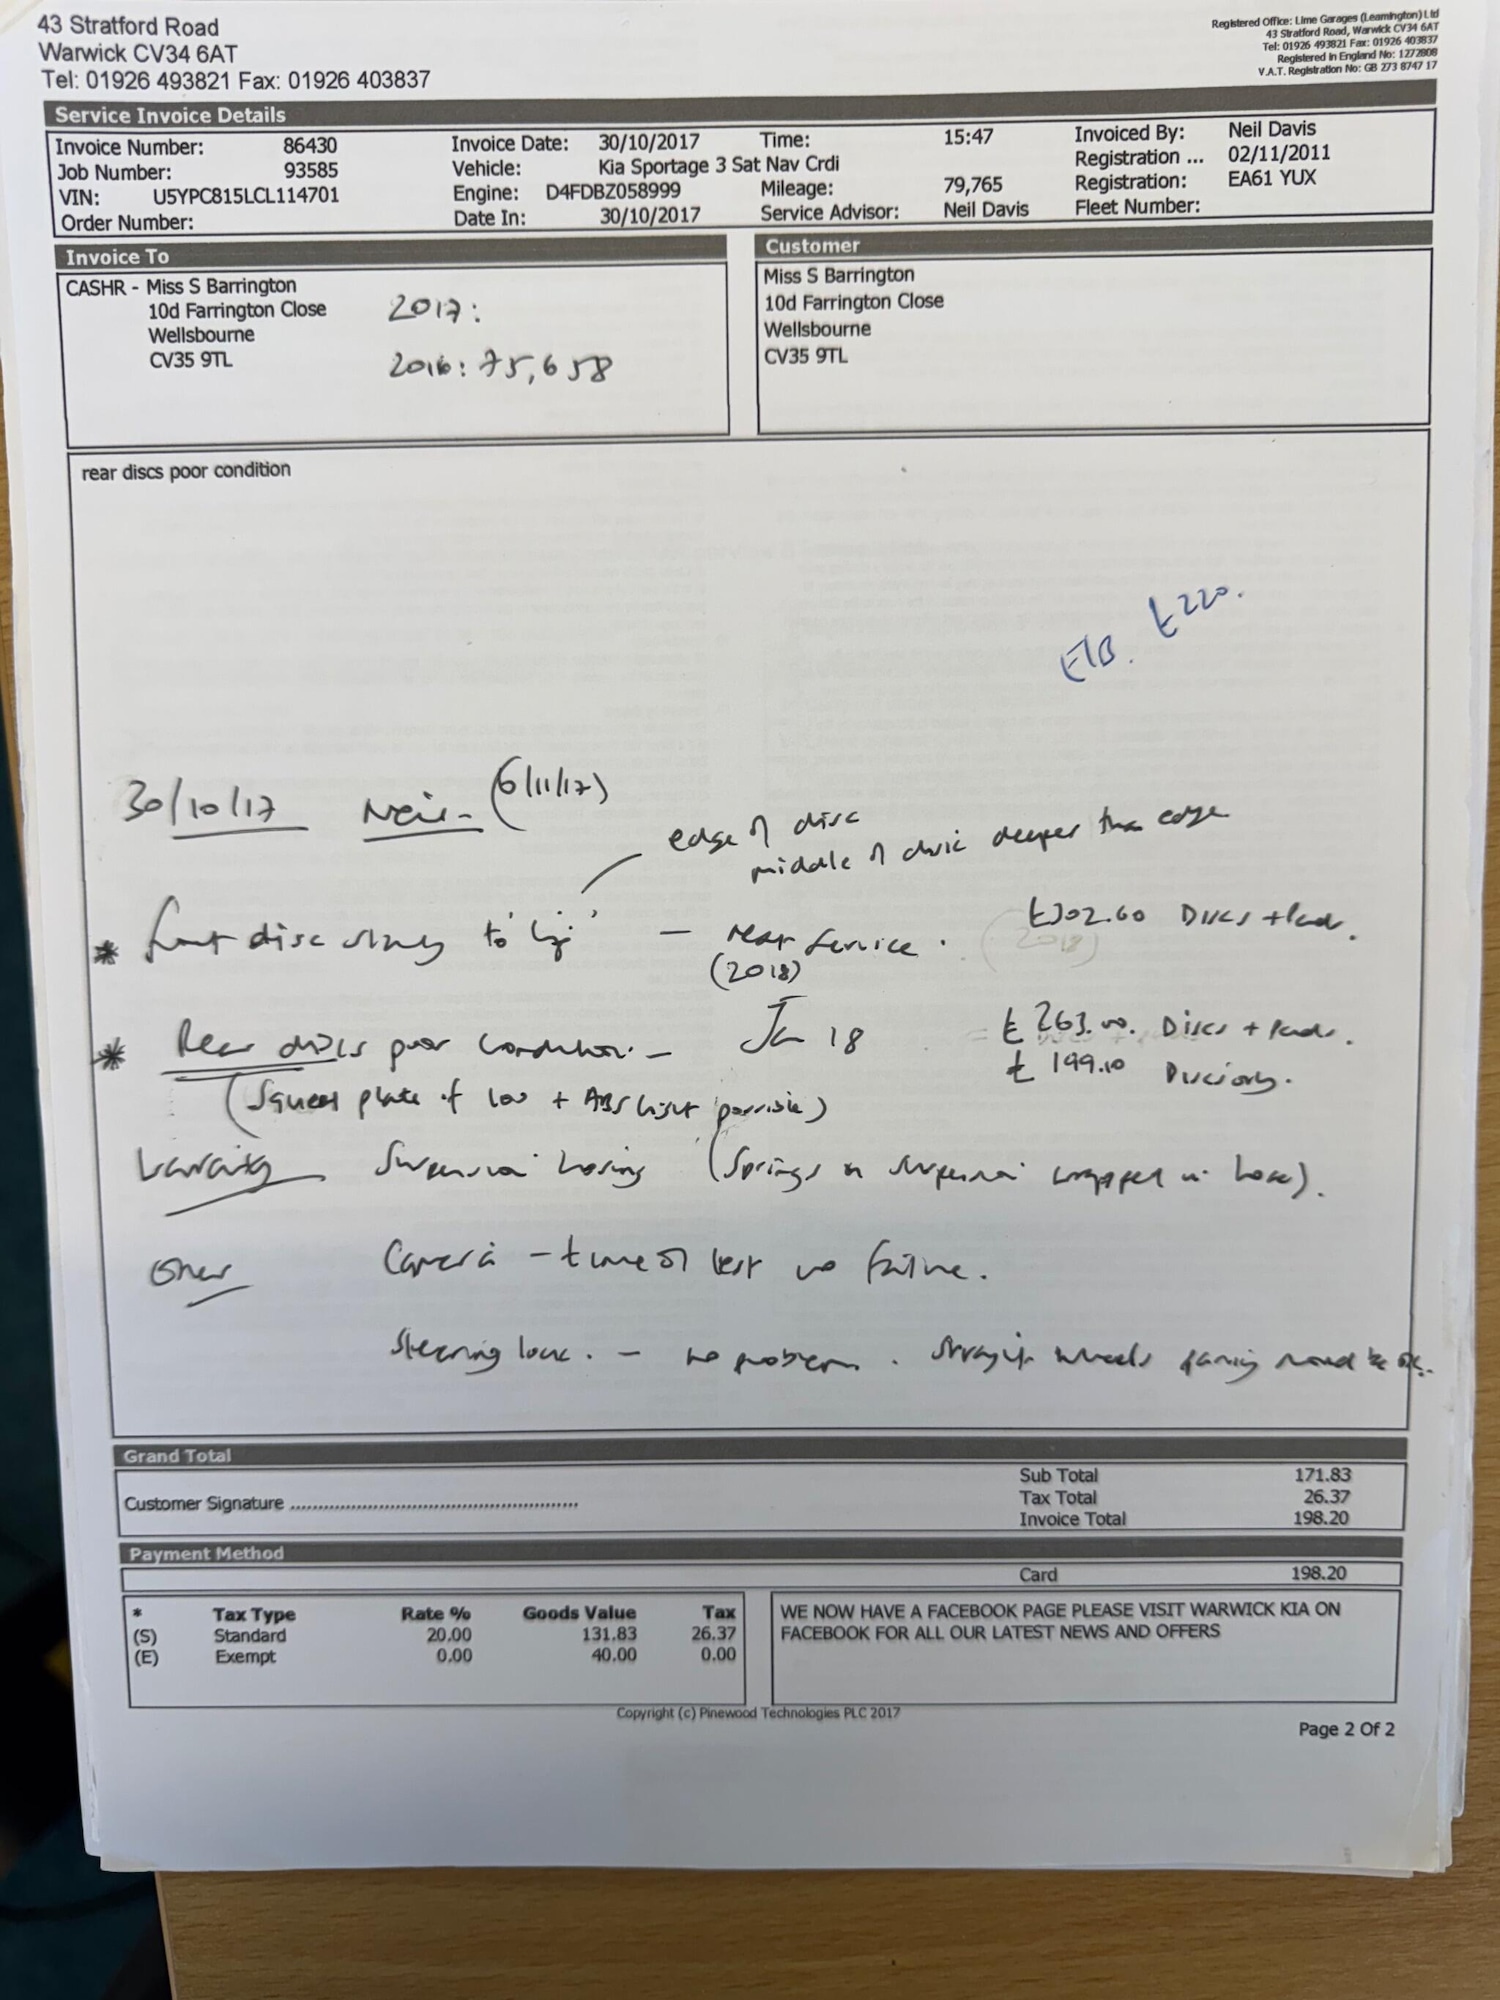 43 Stratford Road
Warwick CV34 6AT
Tel: 01926 493821 Fax: 01926 403837
Registered Office: Lime Garages (Leamington) Ltd
43 Stratford Road, Warwick CV34 6AT
Tel: 01926 493821 Fax: 01926 403837
Registered in England No: 1272808
V.A.T. Registration No: GB 273 8747 17
Service Invoice Details
Invoice Number: 86430 Invoice Date: 30/10/2017 Time: 15:47 Invoiced By: Neil Davis
Job Number: 93585 Vehicle: Kia Sportage 3 Sat Nav Crdi Registration ... 02/11/2011
VIN: U5YPC815LCL114701 Engine: D4FDBZ058999 Mileage: 79,765 Registration: EA61 YUX
Order Number: Date In: 30/10/2017 Service Advisor: Neil Davis Fleet Number:
Invoice To
CASHR - Miss S Barrington
10d Farrington Close
Wellsbourne
CV35 9TL
2017:
2016: 75,658
Customer
Miss S Barrington
10d Farrington Close
Wellsbourne
CV35 9TL
rear discs poor condition
£220.
30/10/17 Neil - (6/11/17)
edge of disc
middle of disic deeper than edge
* front disc to 'lip' - next service. Discs + Pads.
(2018)
(2018)
* Rear discs poor condition - Jan 18 £263.00. Discs + Pads.
£199.10
(Squeal plate if low + ABS light possible)
Suspension hosing (Springs in suspension wrapped in hose).
Other Camera - time of test no failure.
Steering lock. - no problem. Straight wheels
Grand Total
Customer Signature ............................................................
Sub Total 171.83
Tax Total 26.37
Invoice Total 198.20
Payment Method
Card 198.20
* Tax Type Rate % Goods Value Tax
(S) Standard 20.00 131.83 26.37
(E) Exempt 0.00 40.00 0.00
WE NOW HAVE A FACEBOOK PAGE PLEASE VISIT WARWICK KIA ON
FACEBOOK FOR ALL OUR LATEST NEWS AND OFFERS
Copyright (c) Pinewood Technologies PLC 2017
Page 2 Of 2